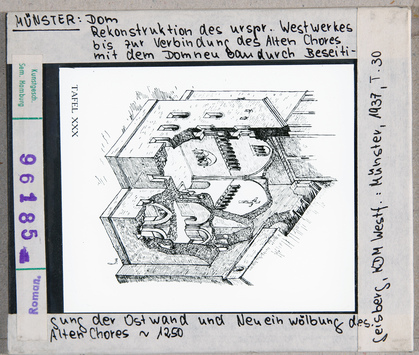 MÜNSTER: Dom
Rekonstruktion des urspr. Westwerkes
bis zur Verbindung des Alten Chores
mit dem Domneubau durch Beseiti-
gung der Ostwand und Neueinwölbung des
Alten Chores ~ 1250
Kunstgesch.
Sem. Hamburg
96185
Roman.
TAFEL XXX
Geisberg, KDM Westf.: Münster, 1937, T. 30